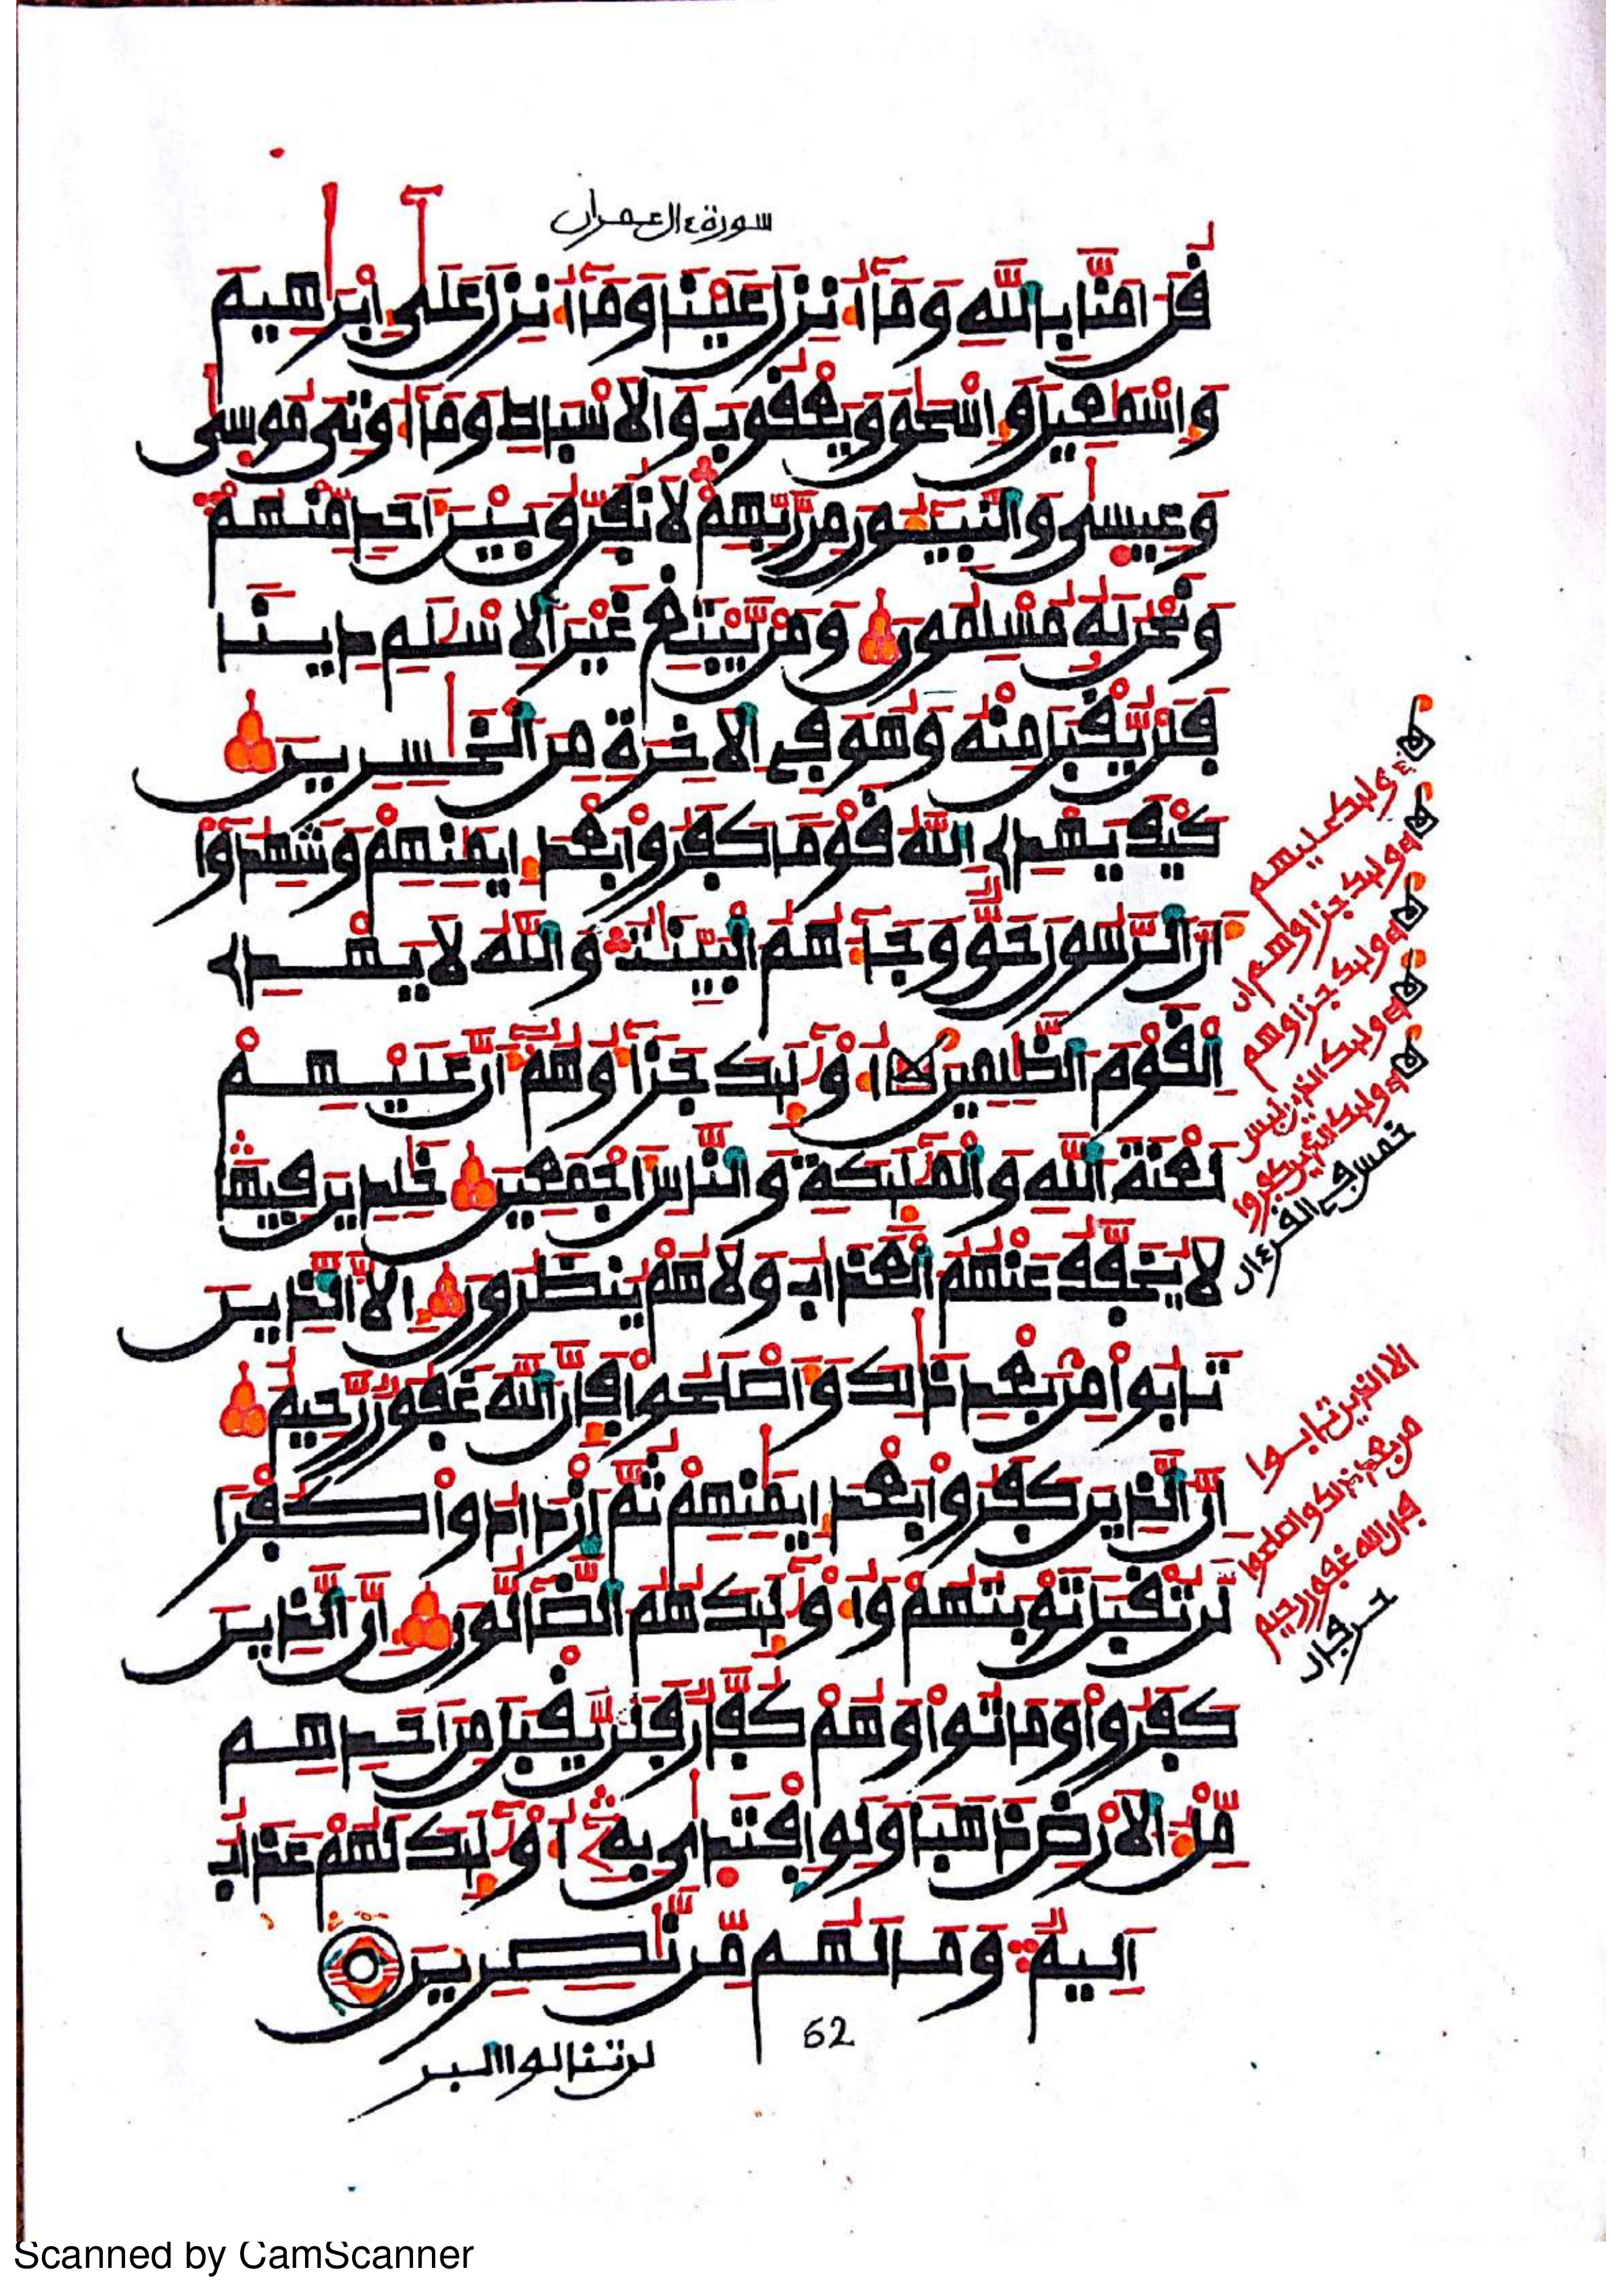 سورة ءال عمران
قُلْ ءَامَنَّا بِاللَّهِ وَمَآ أُنزِلَ عَلَيْنَا وَمَآ أُنزِلَ عَلَىٰٓ إِبْرَٰهِيمَ
وَإِسْمَٰعِيلَ وَإِسْحَٰقَ وَيَعْقُوبَ وَالْأَسْبَاطِ وَمَآ أُوتِيَ مُوسَىٰ
وَعِيسَىٰ وَالنَّبِيُّونَ مِن رَّبِّهِمْ لَا نُفَرِّقُ بَيْنَ أَحَدٍ مِّنْهُمْ
وَنَحْنُ لَهُ مُسْلِمُونَ وَمَن يَّبْتَغِ غَيْرَ الْإِسْلَٰمِ دِينًا
فَلَن يُّقْبَلَ مِنْهُ وَهُوَ فِي الْأَخِرَةِ مِنَ الْخَٰسِرِينَ
كَيْفَ يَهْدِي اللَّهُ قَوْمًا كَفَرُوا بَعْدَ إِيمَٰنِهِمْ وَشَهِدُوٓا
أَنَّ الرَّسُولَ حَقٌّ وَجَآءَهُمُ الْبَيِّنَٰتُ وَاللَّهُ لَا يَهْدِي
الْقَوْمَ الظَّٰلِمِينَ أُوْلَٰٓئِكَ جَزَآؤُهُمْ أَنَّ عَلَيْهِمْ
لَعْنَةَ اللَّهِ وَالْمَلَٰٓئِكَةِ وَالنَّاسِ أَجْمَعِينَ خَٰلِدِينَ فِيهَا
لَا يُخَفَّفُ عَنْهُمُ الْعَذَابُ وَلَا هُمْ يُنظَرُونَ إِلَّا الَّذِينَ
تَابُوا مِنۢ بَعْدِ ذَٰلِكَ وَأَصْلَحُوا فَإِنَّ اللَّهَ غَفُورٌ رَّحِيمٌ
إِنَّ الَّذِينَ كَفَرُوا بَعْدَ إِيمَٰنِهِمْ ثُمَّ ازْدَادُوا كُفْرًا
لَّن تُقْبَلَ تَوْبَتُهُمْ وَأُوْلَٰٓئِكَ هُمُ الضَّآلُّونَ إِنَّ الَّذِينَ
كَفَرُوا وَمَاتُوا وَهُمْ كُفَّارٌ فَلَن يُّقْبَلَ مِنْ أَحَدِهِم
مِّلْءُ الْأَرْضِ ذَهَبًا وَلَوِ افْتَدَىٰ بِهِ أُوْلَٰٓئِكَ لَهُمْ عَذَابٌ
أَلِيمٌ وَمَا لَهُم مِّن نَّٰصِرِينَ
62
لن تنالوا البر
أوليك عليهم
أوليك جزاوهم ان
أوليك جزاوهم
أوليك الذين ليس
أوليك الذين كفروا
خمس في القرءان
الا الذين تابوا
من بعد ذلك واصلحوا
فإن الله غفور رحيم
Scanned by CamScanner